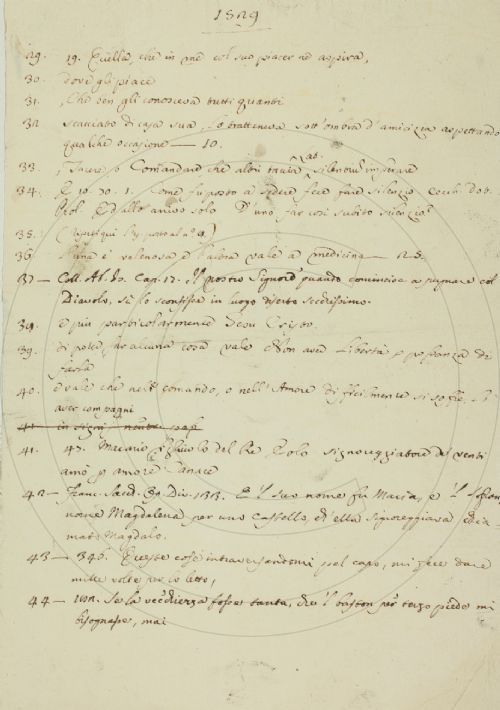 1529
29. 19. Quella, che in me col suo piacer ne aspira,
30. dove gli piace
31. Che ben gli conosceva tutti quanti
32 scacciato di casa sua, lo tratteneva sott'ombra d'amicizia aspettando
qualche occasione — 10.
33. Tacere, o Comandare che altri
34. E 10. 30. 1. Come fu posto a sedere fece fare silenzio Cecchi Dot.
Prol. Ed allo anco solo D'uno far così subito silenzio?
35.
36 l'una è velenosa e l'altra vale a medicina — 125.
37 — Coll. Ab. Is. Cap. 17. Il nostro Signore quando cominciò a pugnare col
Diavolo, sì lo sconfisse in luogo diserto secretissimo.
38. e più particolarmente Jesu Cristo.
39. di poter far alcuna cosa vale Non aver libertà, o possanza di
farla
40. e vale che nel comando, o nell'Amore difficilmente si soffre, s'
aver compagni
41. in
41. 47. Macario figliuolo del Re Eolo signoreggiatore de' venti
amò per amore Canace
42 — Franc. Sacch. Op. Div. 133. E 'l suo nome fu Maria, e 'l
nome Magdalena per uno Castello, ch'ella signoreggiava
mato Magdalo.
43 — 346. Queste cose intraversandomi pel capo, mi fece dare
mille volte per lo letto,
44 — Se la vecchiezza fosse tanta, che 'l baston per terzo piede mi
bisognasse, mai